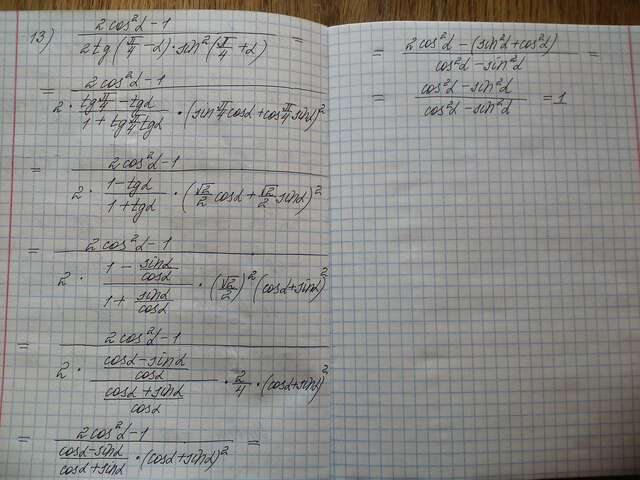 13) (2cos²α - 1) / (2tg(π/4 - α) · sin²(π/4 + α)) =
= (2cos²α - 1) / (2 · (tg π/4 - tgα) / (1 + tg π/4 tgα) · (sin π/4 cosα + cos π/4 sinα)²)
= (2cos²α - 1) / (2 · (1 - tgα) / (1 + tgα) · (√2/2 cosα + √2/2 sinα)²)
= (2cos²α - 1) / (2 · (1 - sinα/cosα) / (1 + sinα/cosα) · (√2/2)² (cosα + sinα)²)
= (2cos²α - 1) / (2 · ((cosα - sinα)/cosα) / ((cosα + sinα)/cosα) · 2/4 · (cosα + sinα)²)
= (2cos²α - 1) / ((cosα - sinα)/(cosα + sinα) · (cosα + sinα)²) =
= (2cos²α - (sin²α + cos²α)) / (cos²α - sin²α) =
= (cos²α - sin²α) / (cos²α - sin²α) = 1